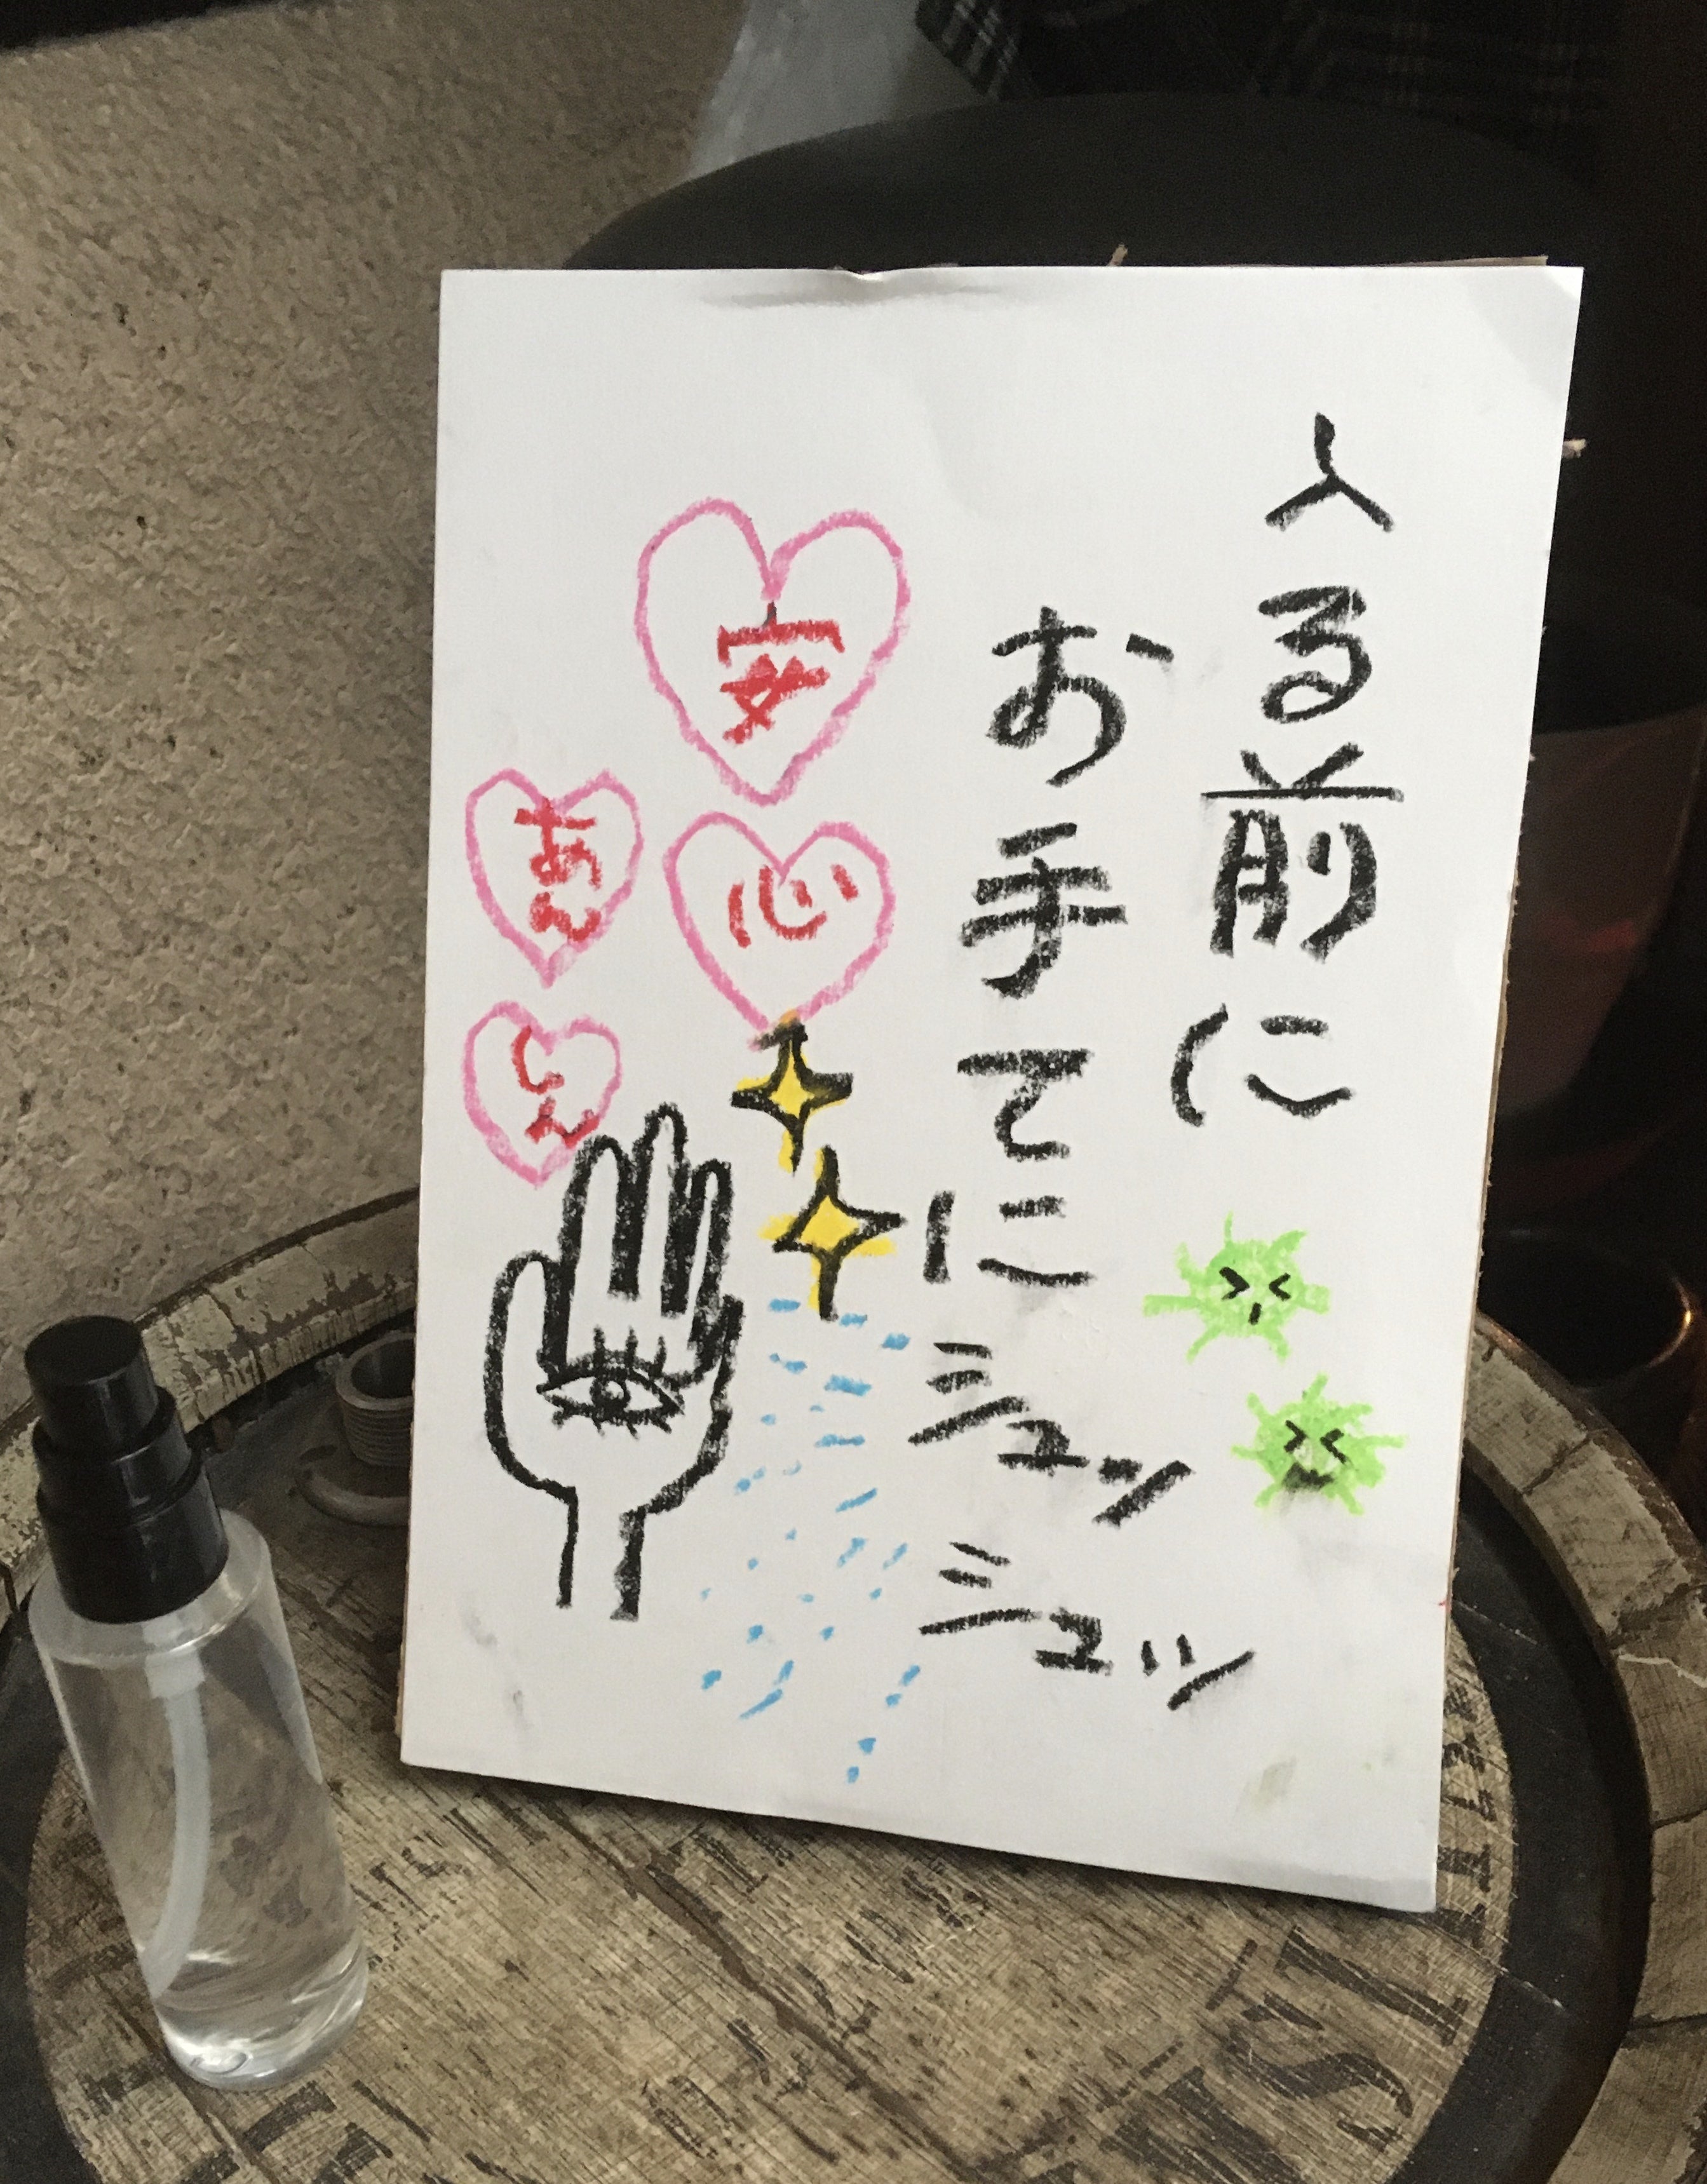 入る前に
お手てに
シュッ
シュッ
安心
あんしん